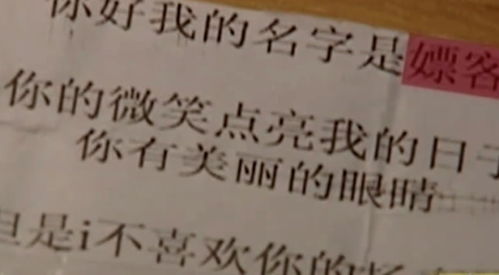 你好我的名字是嫖客
你的微笑点亮我的日子
你有美丽的眼睛
但是i不喜欢你的